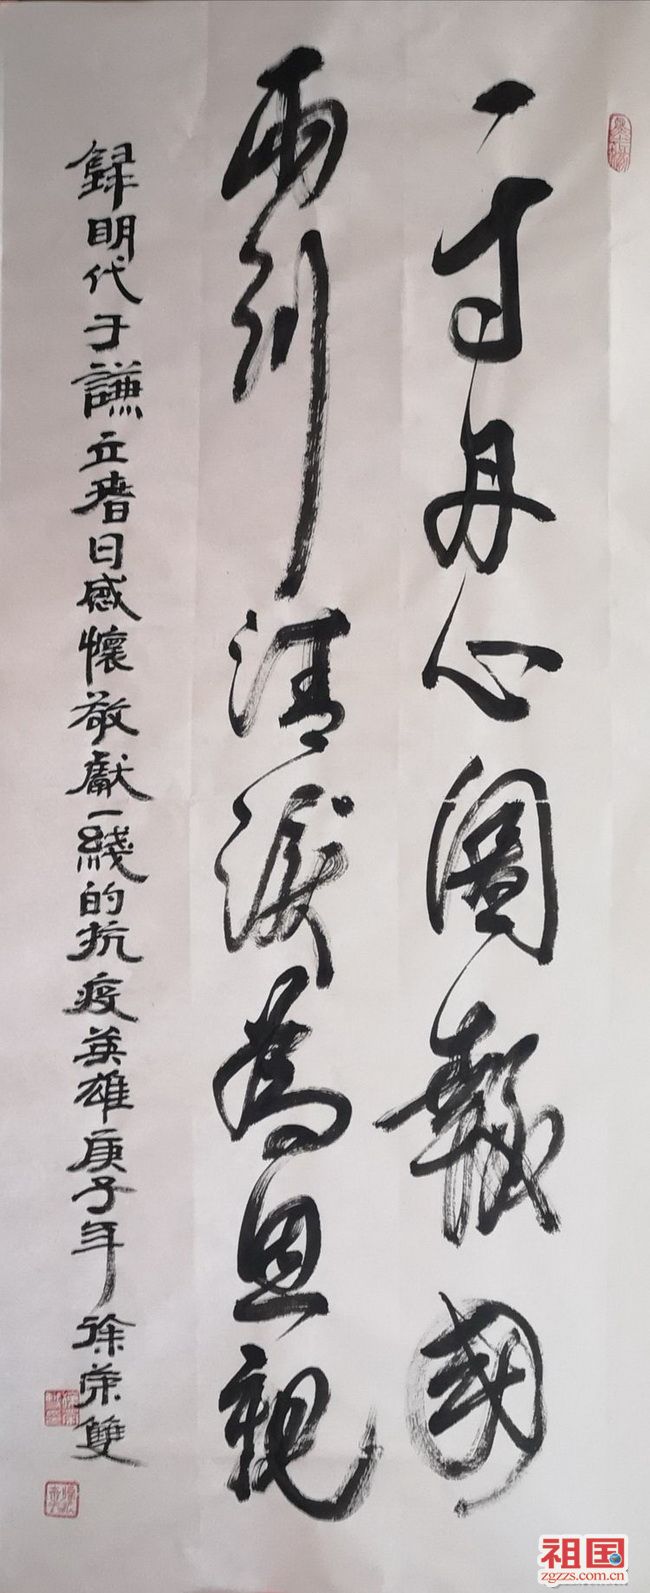 一寸丹心圖報國
兩行清淚為思親
録明代于謙立春日感懷敬獻一綫的抗疫英雄庚子年徐榮雙
祖国
zgzzs.com.cn